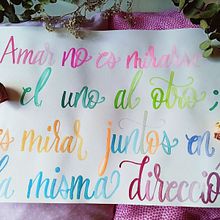 Amar no es mirarse
el uno al otro;
es mirar juntos en
la misma direcció